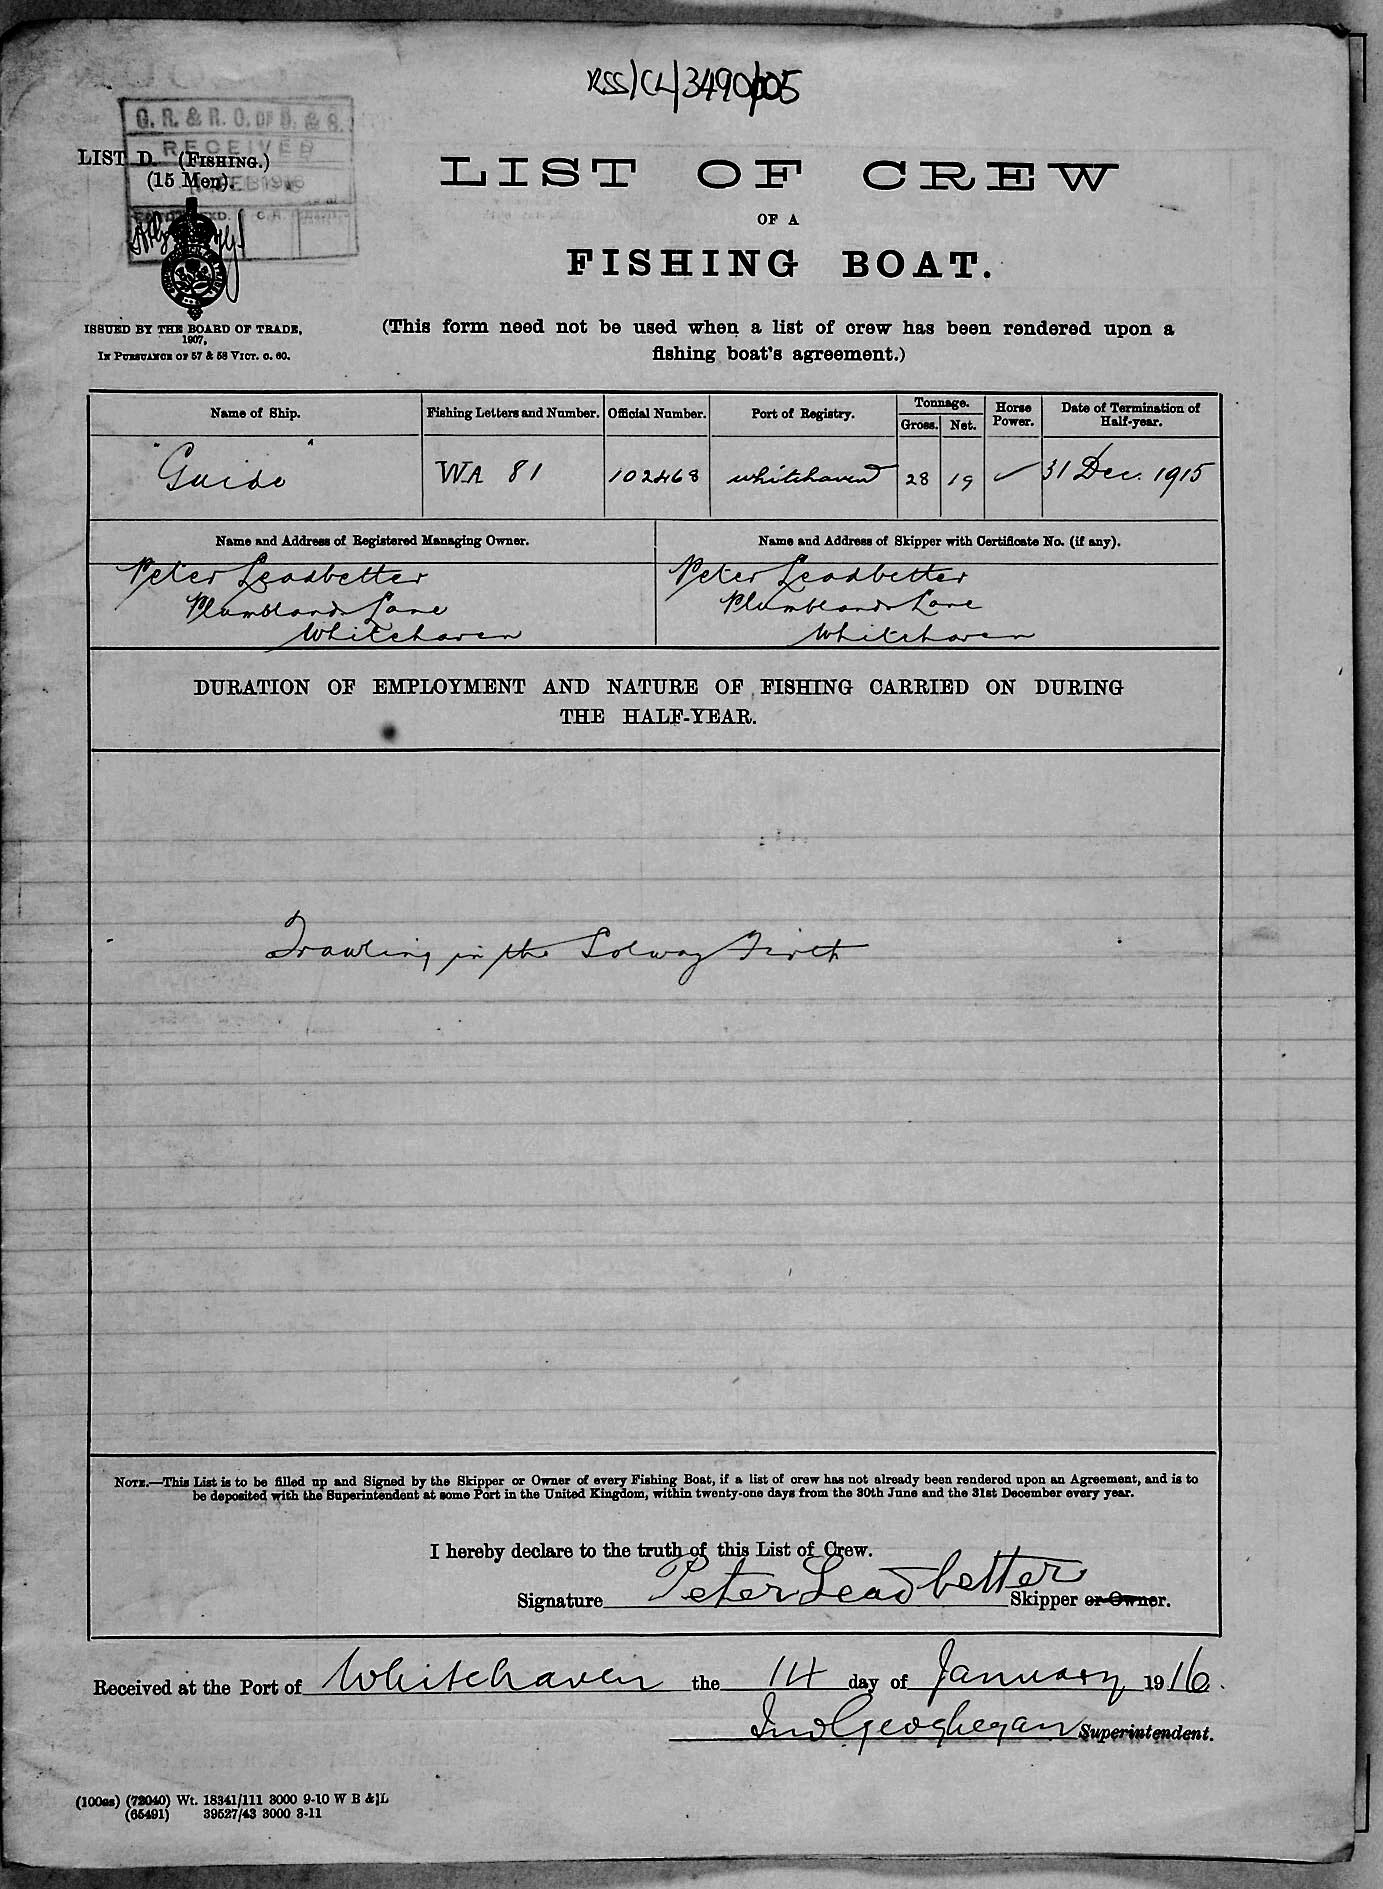 RSS/CL/3490/005
G. R. & R. O. OF S. & S.
RECEIVED
FEB 1916
LIST D. (FISHING.)
(15 Men).
ISSUED BY THE BOARD OF TRADE,
1907,
IN PURSUANCE OF 57 & 58 VICT. c. 60.
LIST OF CREW
OF A
FISHING BOAT.
(This form need not be used when a list of crew has been rendered upon a
fishing boat's agreement.)
Name of Ship. Fishing Letters and Number. Official Number. Port of Registry. Tonnage. Gross. Net. Horse Power. Date of Termination of Half-year.
"Guide" WA 81 102468 Whitehaven 28 19 ✓ 31 Dec. 1915
Name and Address of Registered Managing Owner. Name and Address of Skipper with Certificate No. (if any).
Peter Leadbetter Peter Leadbetter
Plumblands Lane Plumblands Lane
Whitehaven Whitehaven
DURATION OF EMPLOYMENT AND NATURE OF FISHING CARRIED ON DURING
THE HALF-YEAR.
Trawling in the Solway Firth
NOTE.—This List is to be filled up and Signed by the Skipper or Owner of every Fishing Boat, if a list of crew has not already been rendered upon an Agreement, and is to
be deposited with the Superintendent at some Port in the United Kingdom, within twenty-one days from the 30th June and the 31st December every year.
I hereby declare to the truth of this List of Crew.
Signature Peter Leadbetter Skipper or Owner.
Received at the Port of Whitehaven the 14 day of January 1916.
Jno Geoghegan Superintendent.
(100as) (72040) Wt. 18341/111 3000 9-10 W B & L
(65491) 39527/43 3000 3-11